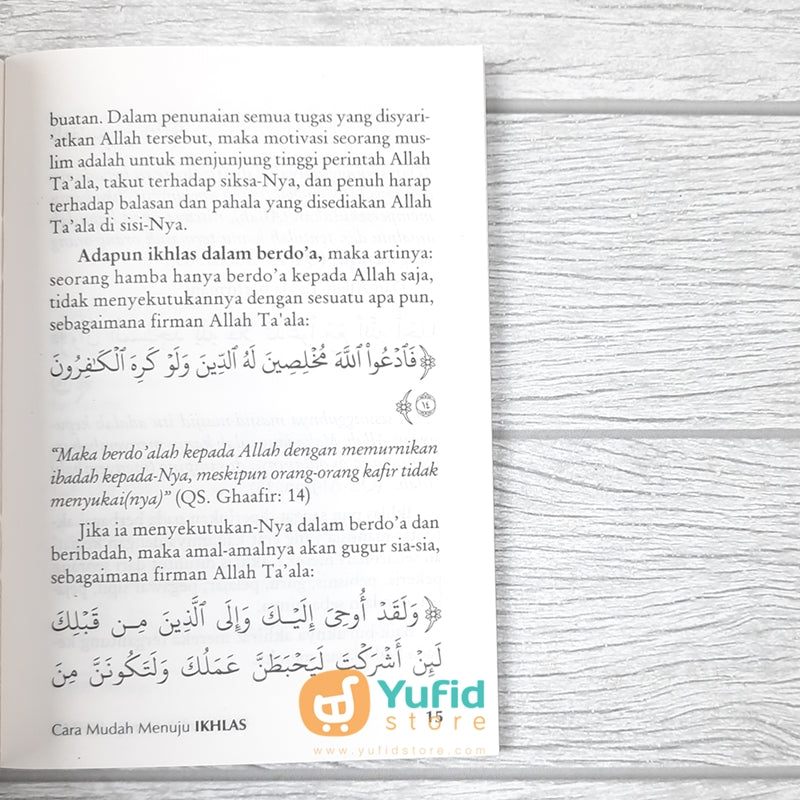 buatan. Dalam penunaian semua tugas yang disyari-
'atkan Allah tersebut, maka motivasi seorang mus-
lim adalah untuk menjunjung tinggi perintah Allah
Ta'ala, takut terhadap siksa-Nya, dan penuh harap
terhadap balasan dan pahala yang disediakan Allah
Ta'ala di sisi-Nya.
Adapun ikhlas dalam berdo'a, maka artinya:
seorang hamba hanya berdo'a kepada Allah saja,
tidak menyekutukannya dengan sesuatu apa pun,
sebagaimana firman Allah Ta'ala:
﴿فَٱدۡعُواْ ٱللَّهَ مُخۡلِصِينَ لَهُ ٱلدِّينَ وَلَوۡ كَرِهَ ٱلۡكَٰفِرُونَ
١٤﴾
"Maka berdo'alah kepada Allah dengan memurnikan
ibadah kepada-Nya, meskipun orang-orang kafir tidak
menyukai(nya)" (QS. Ghaafir: 14)
Jika ia menyekutukan-Nya dalam berdo'a dan
beribadah, maka amal-amalnya akan gugur sia-sia,
sebagaimana firman Allah Ta'ala:
﴿وَلَقَدۡ أُوحِيَ إِلَيۡكَ وَإِلَى ٱلَّذِينَ مِن قَبۡلِكَ
لَئِنۡ أَشۡرَكۡتَ لَيَحۡبَطَنَّ عَمَلُكَ وَلَتَكُونَنَّ مِنَ
Cara Mudah Menuju IKHLAS 15
Yufid
store
www.yufidstore.com